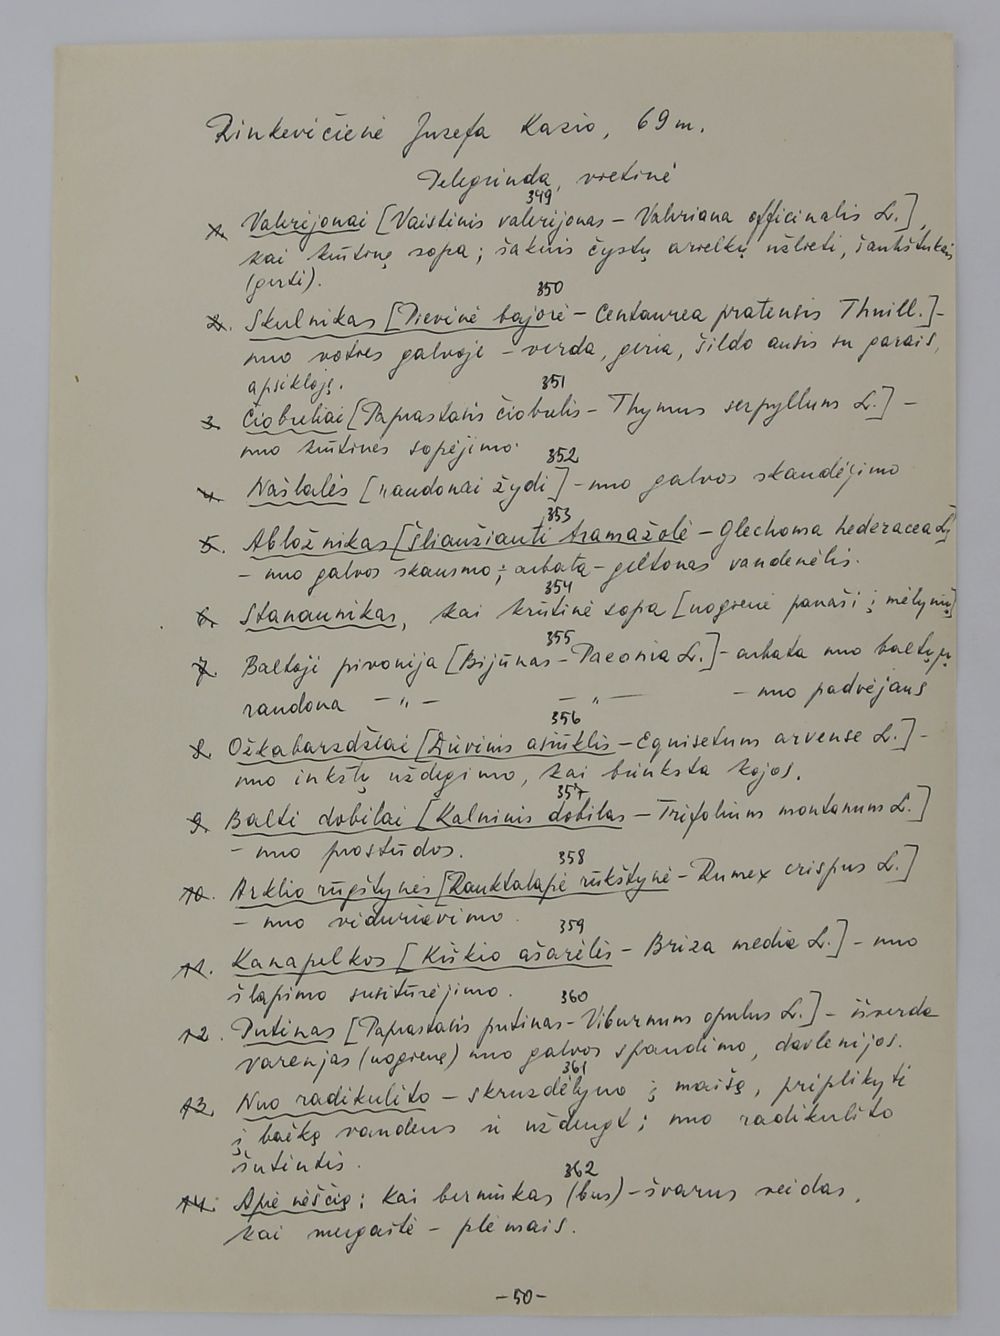 Zinkevičienė Juzefa Kazio, 69 m.
Pelegrinda, vietinė
349
1. Valerijonai [Vaistinis valerijonas – Valeriana officinalis L.],
kai krūtinę sopa; šaknis čystų arielkų užlieti, šaukštukais
(gerti).
350
2. Skulnikas [Pievinė bajorė – Centaurea pratensis Thuill.] –
nuo votres galvoje – verda, geria, šildo ausis su garais,
apsikloję.
351
3. Čiobreliai [Paprastasis čiobrelis – Thymus serpyllum L.] –
nuo krūtinės sopėjimo.
352
4. Našlalės [raudonai žydi] – nuo galvos skaudėjimo
353
5. Abložnikas [Šliaužianti tramažolė – Glechoma hederacea L.]
– nuo galvos skausmo; arbata – geltonas vandenėlis.
354
6. Stanaunikas, kai krūtinė sopa [uogienė panaši į mėlynių]
355
7. Baltoji pivonija [Bijūnas – Paeonia L.] – arbata nuo baltųjų
raudona – " – – " – – nuo padvėjaus
356
8. Ožkabarzdžiai [Dirvinis asiūklis – Equisetum arvense L.] –
nuo inkstų uždegimo, kai brinksta kojos.
357
9. Balti dobilai [Kalninis dobilas – Trifolium montanum L.]
– nuo prostūdos.
358
10. Arklio rūgštynės [Rauktalapė rūkštynė – Rumex crispus L.]
– nuo viduriavimo.
359
11. Kanapelkos [Kiškio ašarėlės – Briza media L.] – nuo
šlapimo susitūrėjimo.
360
12. Putinas [Paprastasis putinas – Viburnum opulus L.] – išverda
varenjas (uogienę) nuo galvos spaudimo, davlenijos.
361
13. Nuo radikulito – skruzdėlyno į maišą, priplikyti
į bačką vandens ir uždengt; nuo radikulito
šutintis.
362
14. Apie nėščią: kai berniukas (bus) – švarus veidas,
kai mergaitė – plėmais.
– 50 –